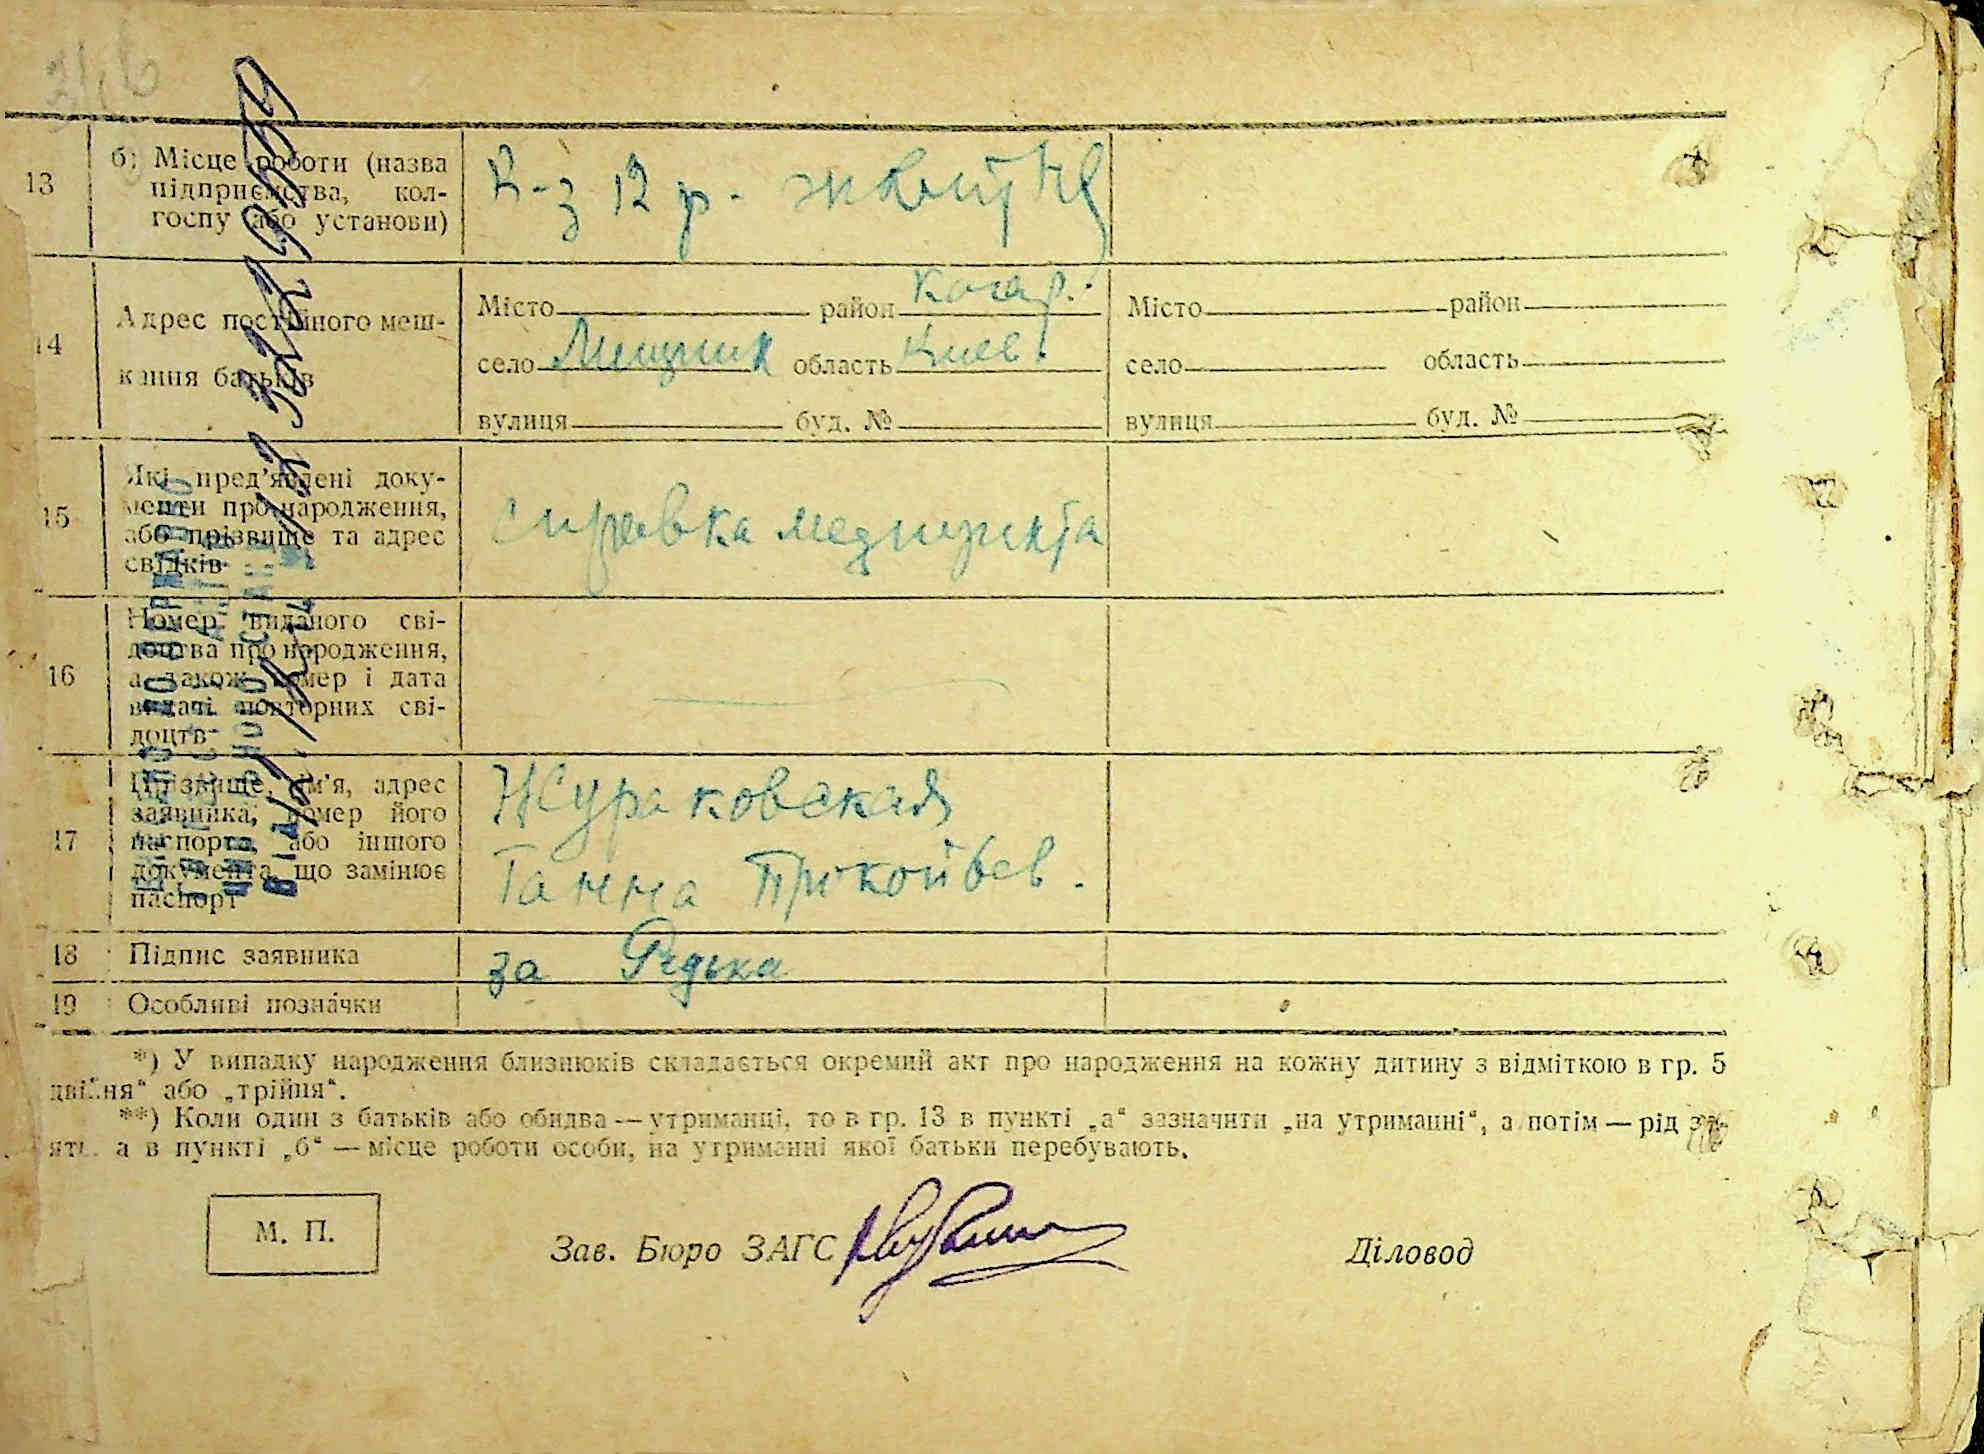 13
б) Місце роботи (назва
підприємства, кол-
госпу або установи)
К-з 12 р. жовтня
14
Адрес постійного меш-
кання батьків
Місто район Кагар.
село область Киев.
вулиця буд. №
Місто район
село область
вулиця буд. №
15
Які пред’явлені доку-
менти про народження,
або прізвище та адрес
свідків
справка медпункта
16
Номер виданого сві-
доцтва про народження,
а також номер і дата
видачі повторних сві-
доцтв
17
Прізвище, ім’я, адрес
заявника, номер його
паспорта, або іншого
документа, що замінює
паспорт
Жураковская
Ганна Прокопьев.
18
Підпис заявника
за Редька
19
Особливі позначки
*) У випадку народження близнюків складається окремий акт про народження на кожну дитину з відміткою в гр. 5
двійня“ або „трійня“.
**) Коли один з батьків або обидва — утриманці, то в гр. 13 в пункті „а“ зазначити „на утриманні“, а потім — рід за-
яття, а в пункті „б“ — місце роботи особи, на утриманні якої батьки перебувають.
М. П.
Зав. Бюро ЗАГС
Діловод